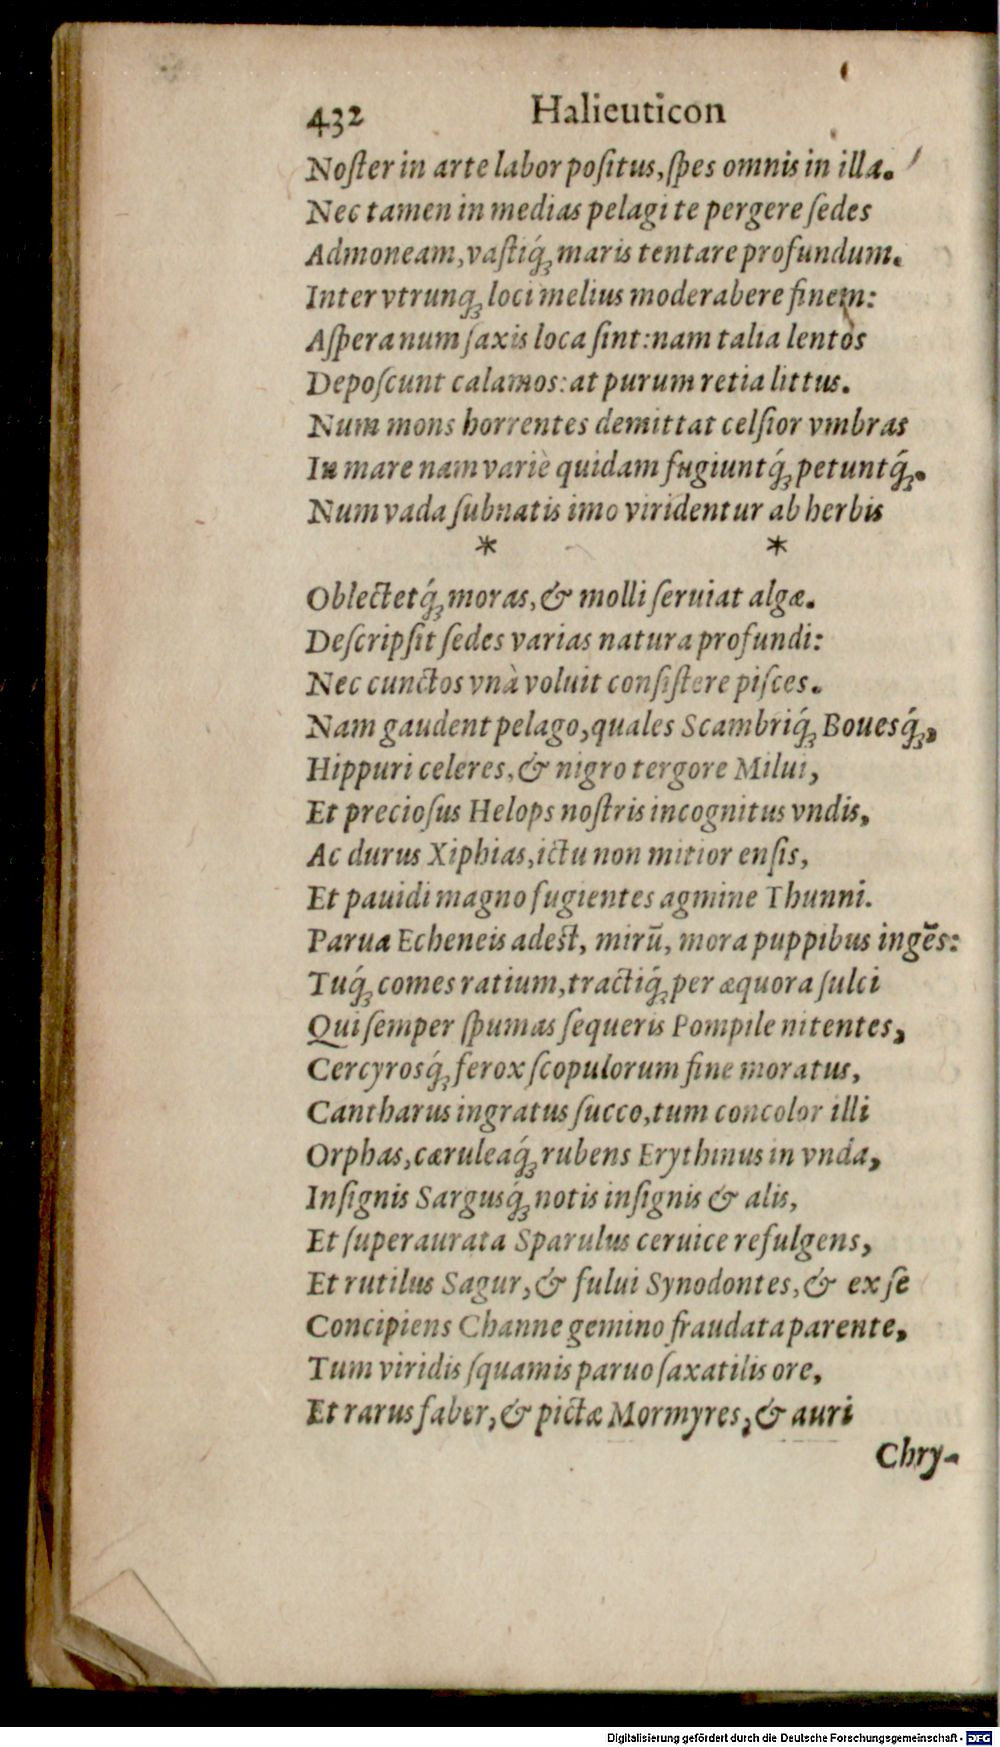 432 Halieuticon
Noſter in arte labor poſitus, ſpes omnis in illa.
Nec tamen in medias pelagi te pergere ſedes
Admoneam, vaſtiq́ꝫ maris tentare profundum.
Inter vtrunqꝫ loci melius moderabere finem:
Aſpera num ſaxis loca ſint: nam talia lentos
Depoſcunt calamos: at purum retia littus.
Num mons horrentes demittat celſior vmbras
In mare nam variè quidam fugiuntq́ꝫ petuntq́ꝫ.
Num vada ſubnatis imo viridentur ab herbis
* *
Oblectetq́ꝫ moras, & molli ſeruiat algæ.
Deſcripſit ſedes varias natura profundi:
Nec cunctos vnà voluit conſiſtere piſces.
Nam gaudent pelago, quales Scambriq́ꝫ Bouesq́ꝫ,
Hippuri celeres, & nigro tergore Milui,
Et precioſus Helops noſtris incognitus vndis,
Ac durus Xiphias, ictu non mitior enſis,
Et pauidi magno fugientes agmine Thunni.
Parua Echeneis adest, mirũ, mora puppibus ingẽs:
Tuq́ꝫ comes ratium, tractiq́ꝫ per æquora ſulci
Qui ſemper ſpumas ſequeris Pompile nitentes,
Cercyrosq́ꝫ ferox ſcopulorum fine moratus,
Cantharus ingratus ſucco, tum concolor illi
Orphas, cæruleaq́ꝫ rubens Erythinus in vnda,
Inſignis Sargusq́ꝫ notis inſignis & alis,
Et ſuper aurata Sparulus ceruice refulgens,
Et rutilus Sagur, & fului Synodontes, & ex ſe
Concipiens Channe gemino fraudata parente,
Tum viridis ſquamis paruo ſaxatilis ore,
Et rarus faber, & pictæ Mormyres, & auri
Chry-
Digitalisierung gefördert durch die Deutsche Forschungsgemeinschaft - DFG